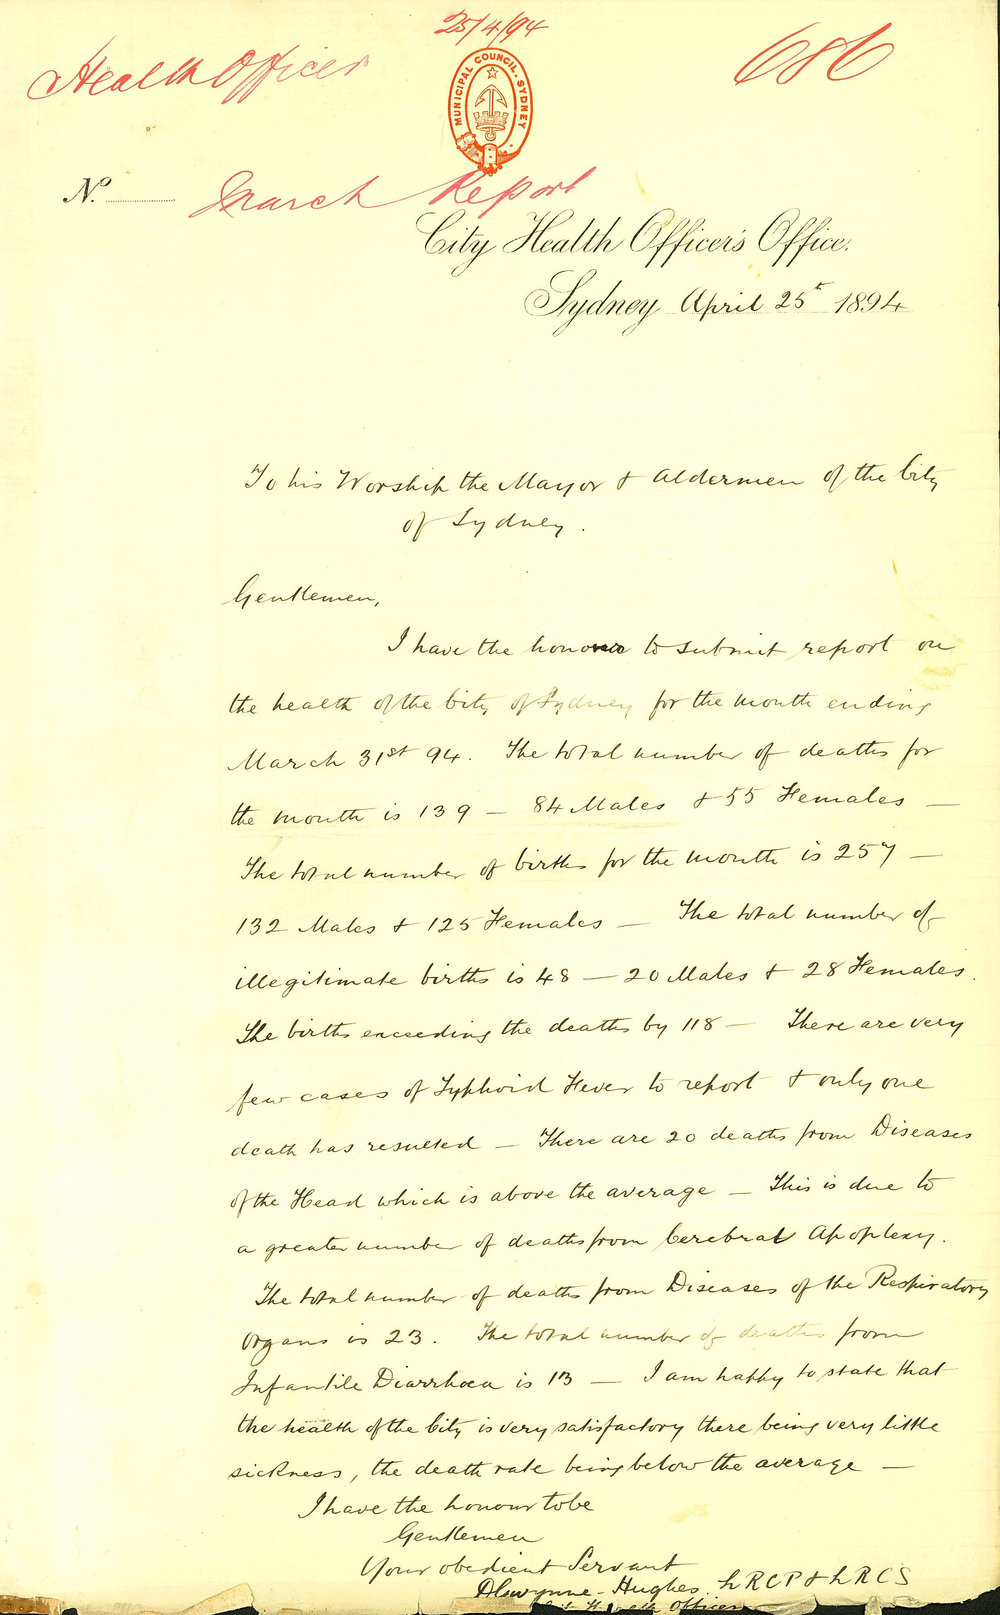 25/4/94
Health Officer
686
MUNICIPAL COUNCIL. SYDNEY
No.
March Report
City Health Officer's Office.
Sydney April 25t 1894
To his Worship the Mayor & Aldermen of the City
of Sydney.
Gentlemen,
I have the honour to submit report on
the health of the City of Sydney for the month ending
March 31st 94. The total number of deaths for
the month is 139 — 84 Males & 55 Females —
The total number of births for the month is 257 —
132 Males & 125 Females — The total number of
illegitimate births is 48 — 20 Males & 28 Females.
The births exceeding the deaths by 118 — There are very
few cases of Typhoid Fever to report & only one
death has resulted — There are 20 deaths from Diseases
of the Head which is above the average — This is due to
a greater number of deaths from Cerebral Apoplexy.
The total number of deaths from Diseases of the Respiratory
Organs is 23. The total number of deaths from
Infantile Diarrhoea is 13 — I am happy to state that
the health of the City is very satisfactory there being very little
sickness, the death rate being below the average —
I have the honour to be
Gentlemen
Your obedient Servant
Gwynne-Hughes. LRCP & LRCS
City Health Officer